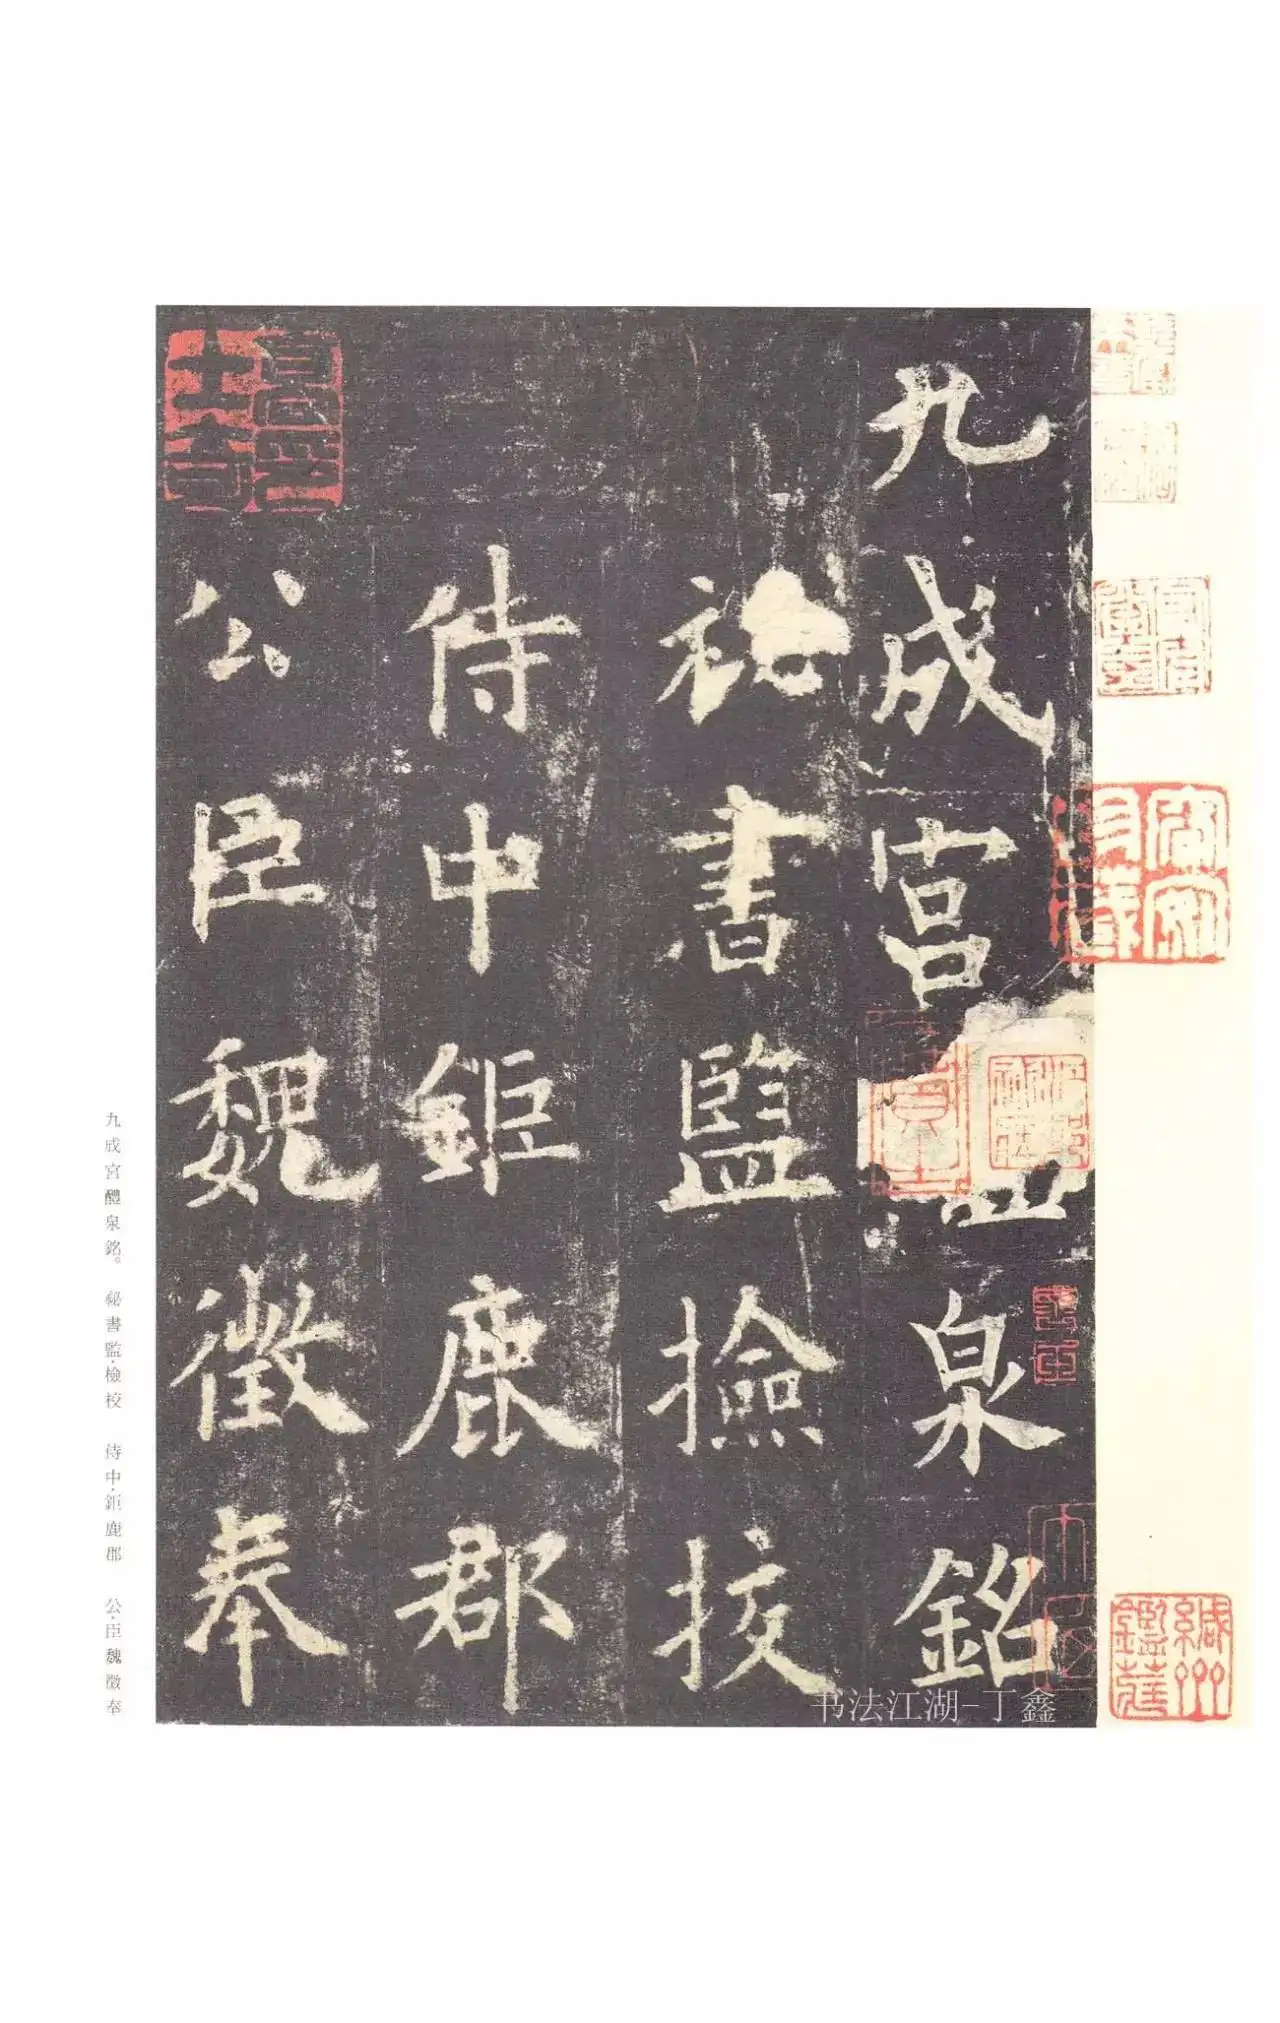 九成宮醴泉銘
秘書監撿挍
侍中鉅鹿郡
公臣魏徵奉
九成宮醴泉銘。 祕書監·檢校 侍中·鉅鹿郡 公·臣魏徵奉
书法江湖-丁鑫